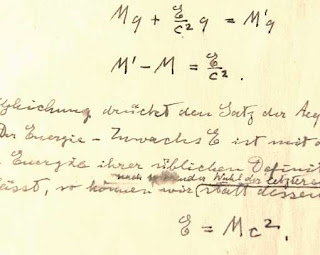 Mq + E/c² q = M'q
M' - M = E/c².
Gleichung drückt den Satz der Aeq
Der Energie-Zuwachs E ist mit d
Energie ihrer üblichen Definit
nach passender Wahl der letzteren
lässt, so können wir (statt dessen
E = Mc².